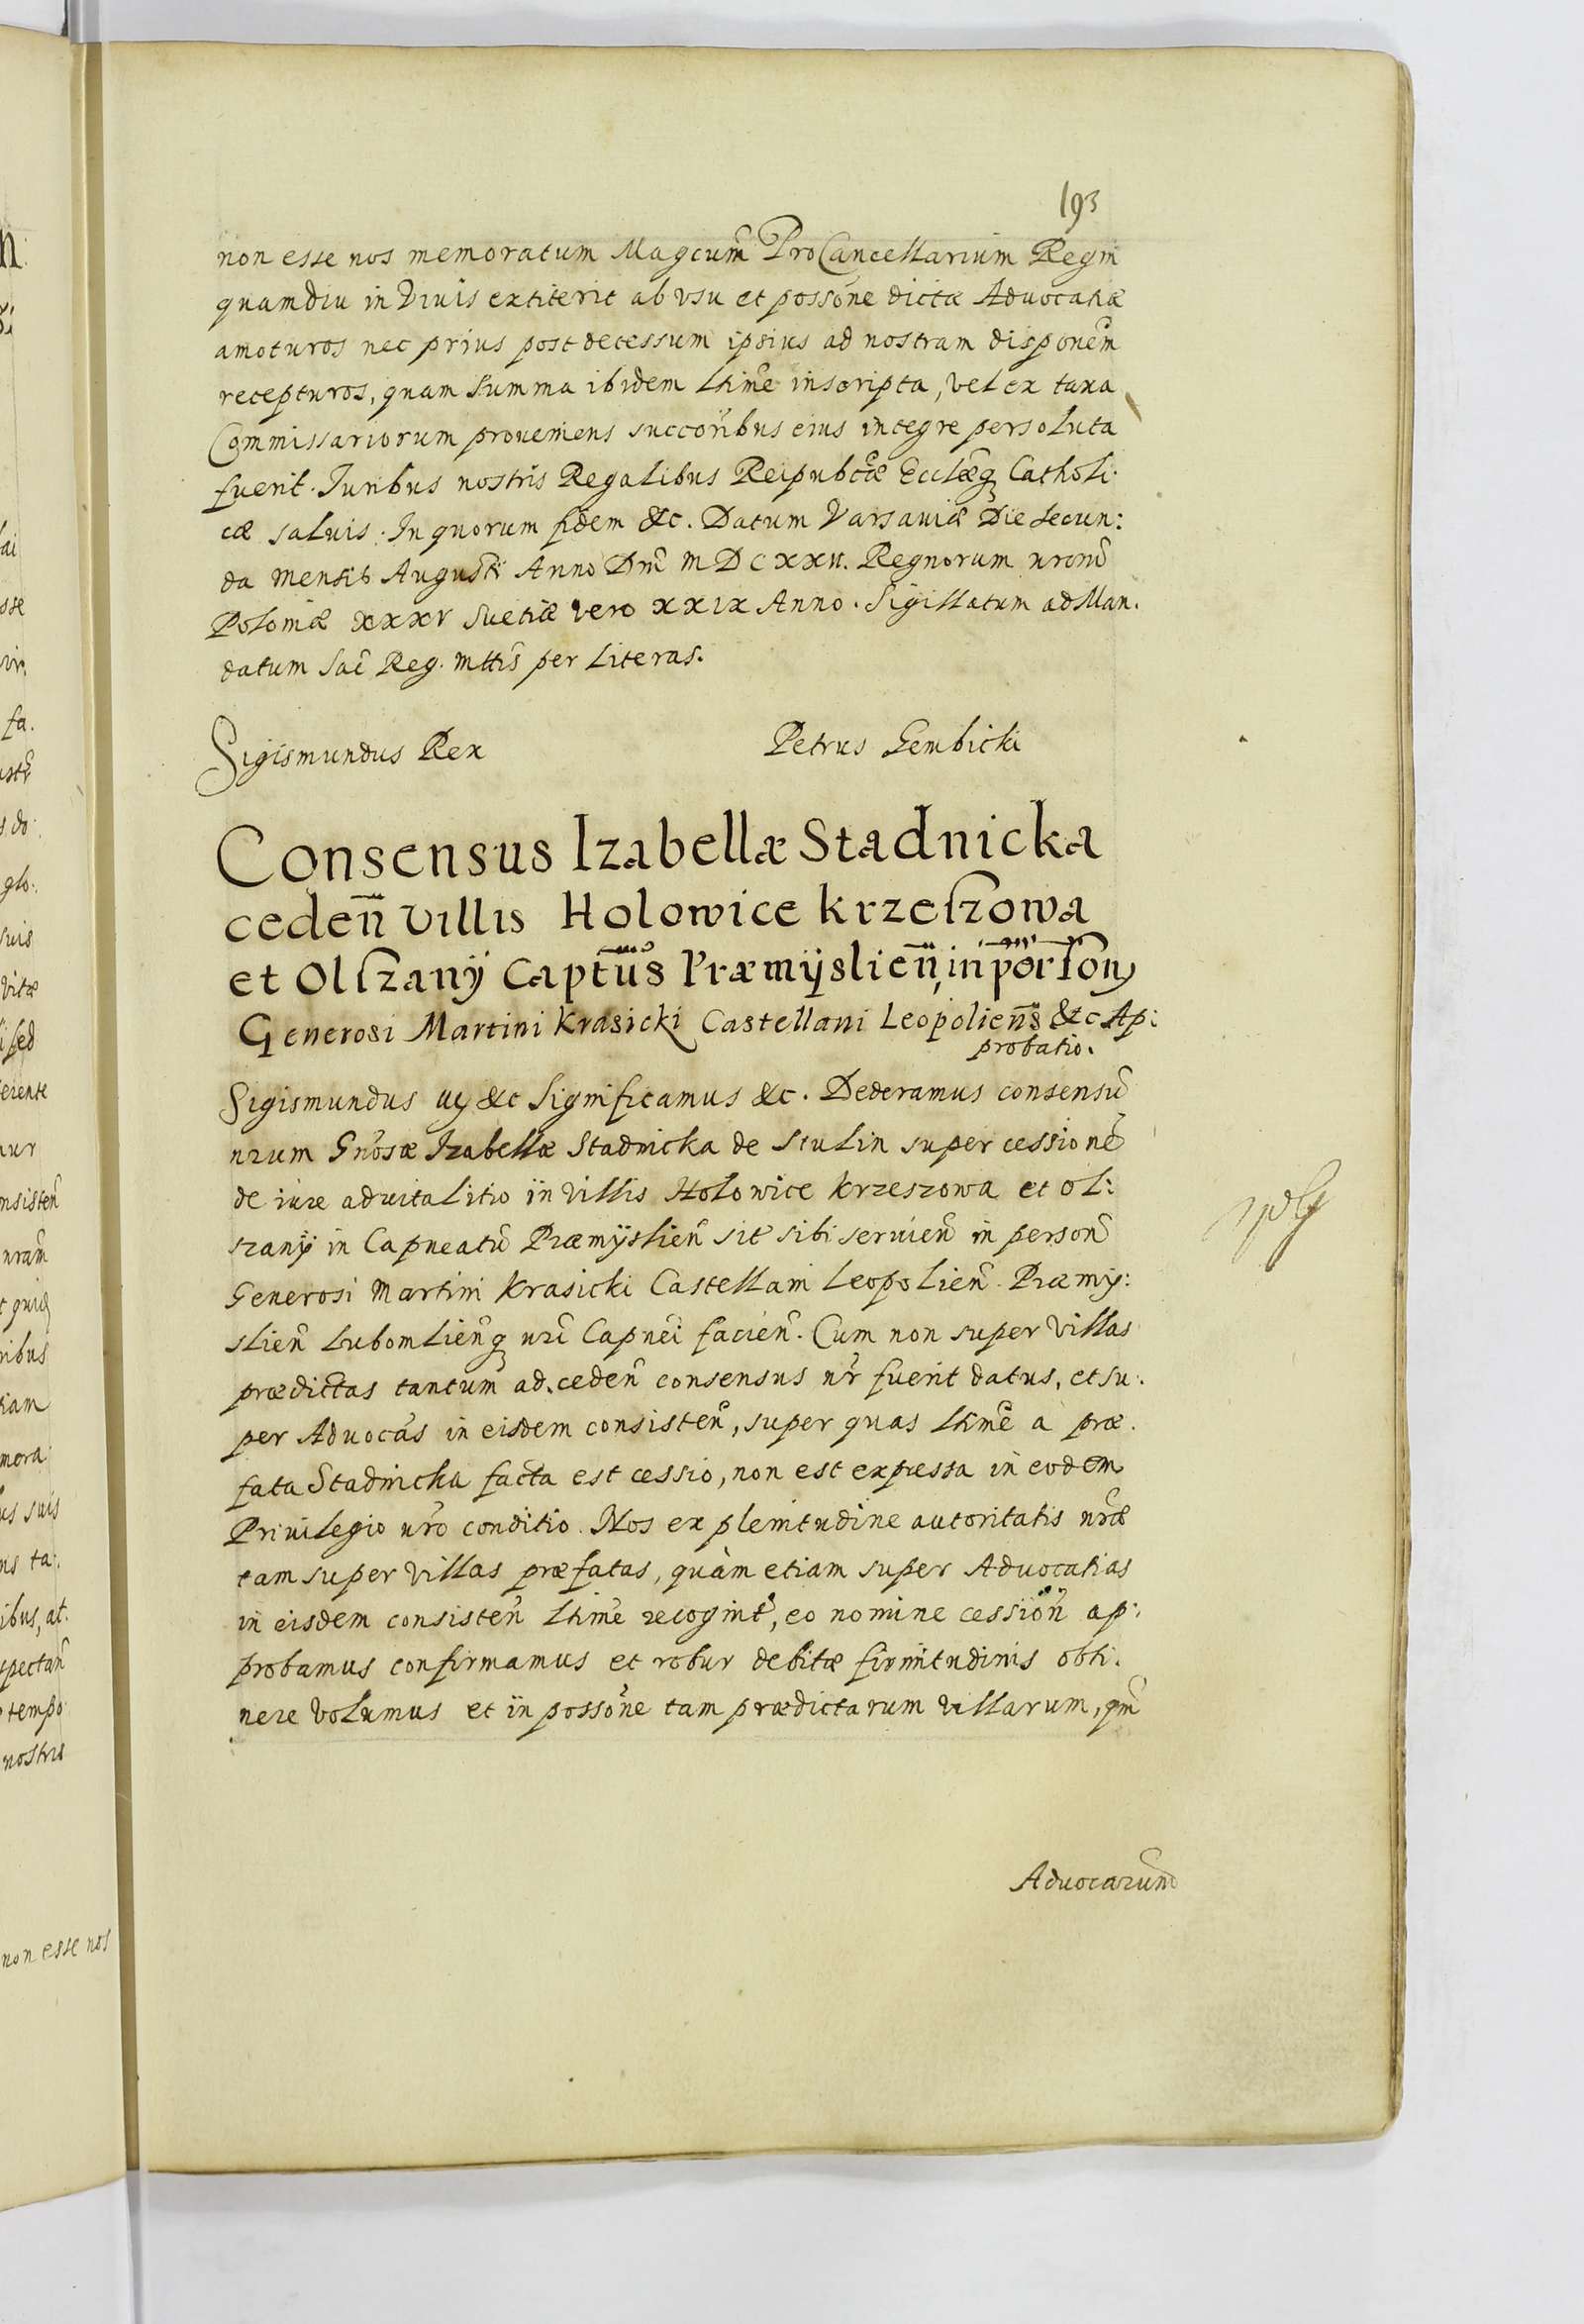 193
non esse nos memoratum Magcum̃ ProCancellarium Regni
quamdiu in Viuis extiterit ab vsu et possõne dictæ Aduocatiæ
amoturos nec prius post decessum ipsius ad nostram disponem̃
recepturos, quam summa ibidem lt̃ime inscripta, vel ex taxa
Commissariorum proueniens succõribus eius integre persoluta
fuerit. Iuribus nostris Regalibus Reipubcæ̃ Ecclæq̃ Catholi:
cæ saluis. In quorum fidem &c. Datum Varsauiæ Die secun:
da Mensis Augusti Anno Dnĩ MDCXXII. Regnorum nrorũ
Poloniæ XXXV Suetiæ vero XXIX Anno. Sigillatum ad Man.
datum Sac̃ Reg. Mttis̃ per Literas.
Sigismundus Rex
Petrus Gembicki
Consensus Izabellæ Stadnicka
ceden̄ Villis Holowice Krzeszowa
et Olszanÿ Captũs Præmÿslien̄, in põrson
Generosi Martini Krasicki Castellani Leopolien̄s &c Ap:
probatio.
Sigismundus &c Significamus &c. Dederamus consensũ
nrum Gñosæ Izabellæ Stadnicka de super cessionẽ
de iure aduitalitio in Villis Holowice Krzeszowa et Ol:
szanÿ in Capneatũ Præmÿslien̄ sit̃ sibi seruien̄ in person̄
Generosi Martini Krasicki Castellani Leopolien̄. Præmÿ:
slien̄ Lubomlien̄q nrĩ Capnei facien̄. Cum non super Villas
prædictas tantum ad ceden̄ consensus nr̃ fuerit datus, et su:
per Aduocãs in eisdem consisten̄, super quas lt̃ime a præ.
fata Stadnicka facta est cessio, non est expressa in eodem
Priuilegio nr̃o conditio. Nos ex plenitudine autoritatis nr̃æ
tam super Villas præfatas, quàm etiam super Aduocatias
in eisdem consisten̄ lt̃ime recognit̃, eo nomine cession̄ ap:
probamus confirmamus et robur debitæ firmitudinis obti.
nere volumus et in possõne tam prædictarum Villarum, qm̃
Aduocarum̃